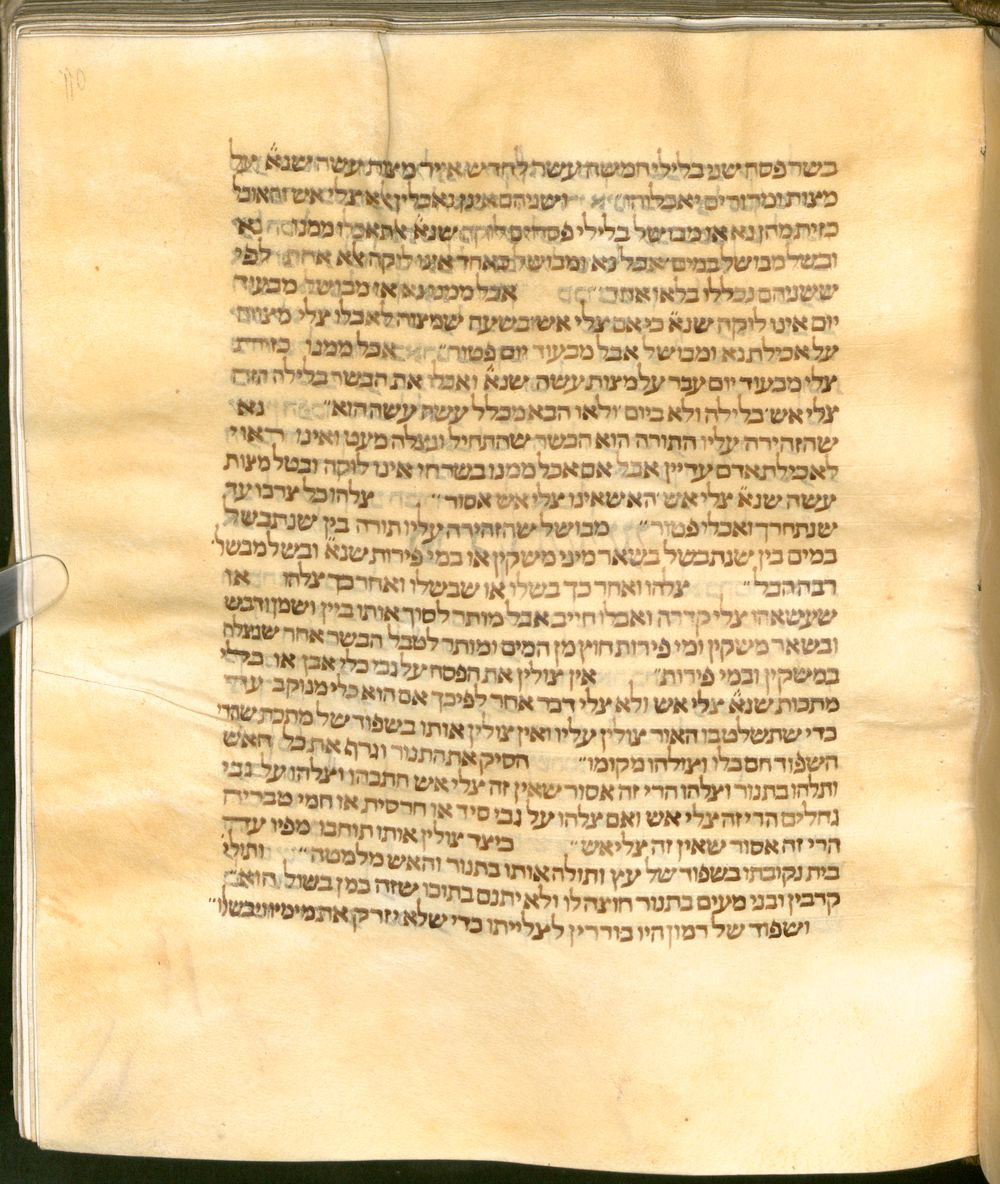 בשר פסח שני בלילי חמשה עשר לחדש אייר מצות עשה שנא׳ על
מצות ומרורים יאכלוהו׳׳ ושניהם אינן נאכלין אלא צלי אש והאוכל
כזית מהן נא או מבושל בלילי פסחים לוקה שנא׳ אל תאכלו ממנו נא
ובשל מבושל במים אכל נא ומבושל כאחד אינו לוקה אלא אחת לפי
ששניהם נכללו בלאו אחד׳׳ אכל ממנו נא או מבושל מבעוד
יום אינו לוקה שנא׳ כי אם צלי אש בשעה שמצוה לאכלו צלי מצווה
על אכילת נא ומבושל אבל מבעוד יום פטור׳׳ אכל ממנו כזית
צלי מבעוד יום עבר על מצות עשה שנא׳ ואכלו את הבשר בלילה הזה
צלי אש בלילה ולא ביום ולאו הבא מכלל עשה עשה הוא׳׳ נא
שהזהירה עליו התורה הוא הבשר שהתחיל ונצלה מעט ואינו ראוי
לאכילת אדם עדיין אבל אם אכל ממנו בשר חי אינו לוקה ובטל מצות
עשה שנא׳ צלי אש הא שאינו צלי אש אסור׳׳ צלהו כל צרכו עד
שנתחרך ואכלו פטור׳׳ מבושל שהזהירה עליו תורה בין שנתבשל
במים בין שנתבשל בשאר מיני משקין או במי פירות שנא׳ ובשל מבשל
רבה הכל׳׳ צלהו ואחר כך בשלו או שבשלו ואחר כך צלהו או
שעשאהו צלי קדרה ואכלו חייב אבל מותר לסוך אותו ביין ושמן ודבש
ובשאר משקין ומי פירות חוץ מן המים ומותר לטבל הבשר אחר שנצלה
במשקין ובמי פירות׳׳ אין צולין את הפסח על גבי כלי אבן או בכלי
מתכות שנא׳ צלי אש ולא צלי דבר אחר לפיכך אם הוא כלי מנוקב
כדי שתשלט בו האור צולין עליו ואין צולין אותו בשפוד של מתכת שהרי
השפוד חם כלו וצולהו מקומו׳׳ הסיק את התנור וגרף את כל האש
ותלהו בתנור וצלהו הרי זה אסור שאין זה צלי אש חתכהו וצלהו על גבי
גחלים הרי זה צלי אש ואם צלהו על גבי סיד או חרסית או חמי טבריה
הרי זה אסור שאין זה צלי אש׳׳ כיצד צולין אותו תוחבו מפיו עד
בית נקובתו בשפוד של עץ ותולה אותו בתנור והאש מלמטה׳׳ ותולי׳
קרבין ובני מעים בתנור חוצה לו ולא יתנם בתוכו שזה כמן בשול הוא׳׳
ושפוד של רמון היו בוררין לצלייתו כדי שלא יזרק את מימיו ויבשלו׳׳